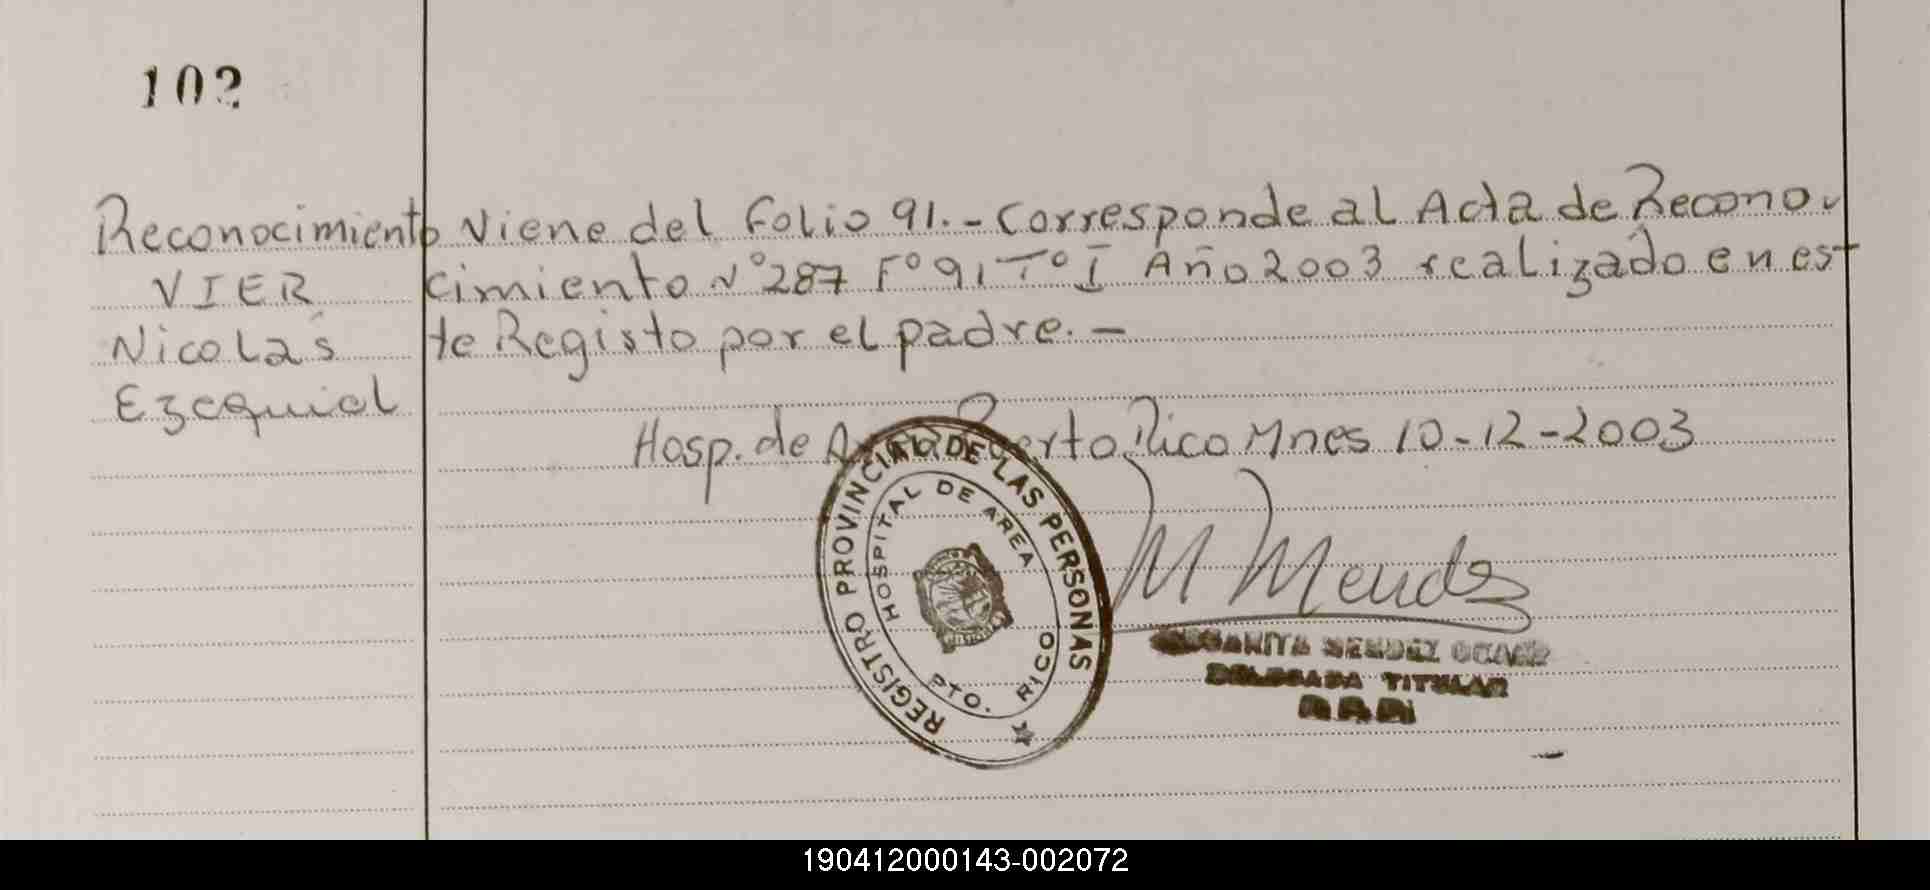 102
Reconocimiento Viene del Folio 91.- Corresponde al Acta de Recono-
VIER cimiento N° 287 F° 91 T° I Año 2003 realizado en es-
Nicolás te Registo por el padre.-
Ezequiel
Hosp. de Area Puerto Rico Mnes 10-12-2003
REGISTRO PROVINCIAL DE LAS PERSONAS
HOSPITAL DE AREA
PTO. RICO
M Mendez
MENDEZ
DELEGADA TITULAR
190412000143-002072